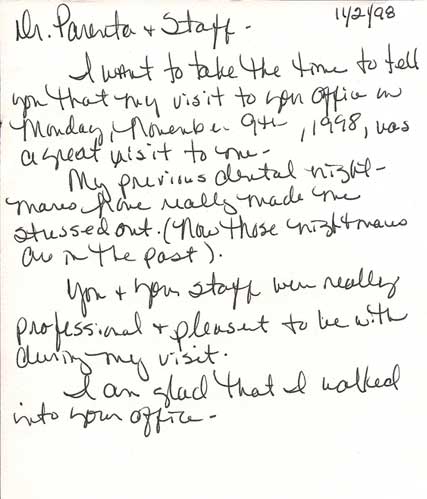 11/2/98
Dr. Parenta + Staff -
I want to take the time to tell
you that my visit to your office on
Monday, November 9th, 1998, was
a great visit to me -
My previous dental night-
mares have really made me
stressed out. (Now those nightmares
are in the past).
You + your staff were really
professional + pleasent to be with
during my visit.
I am glad that I walked
into your office -